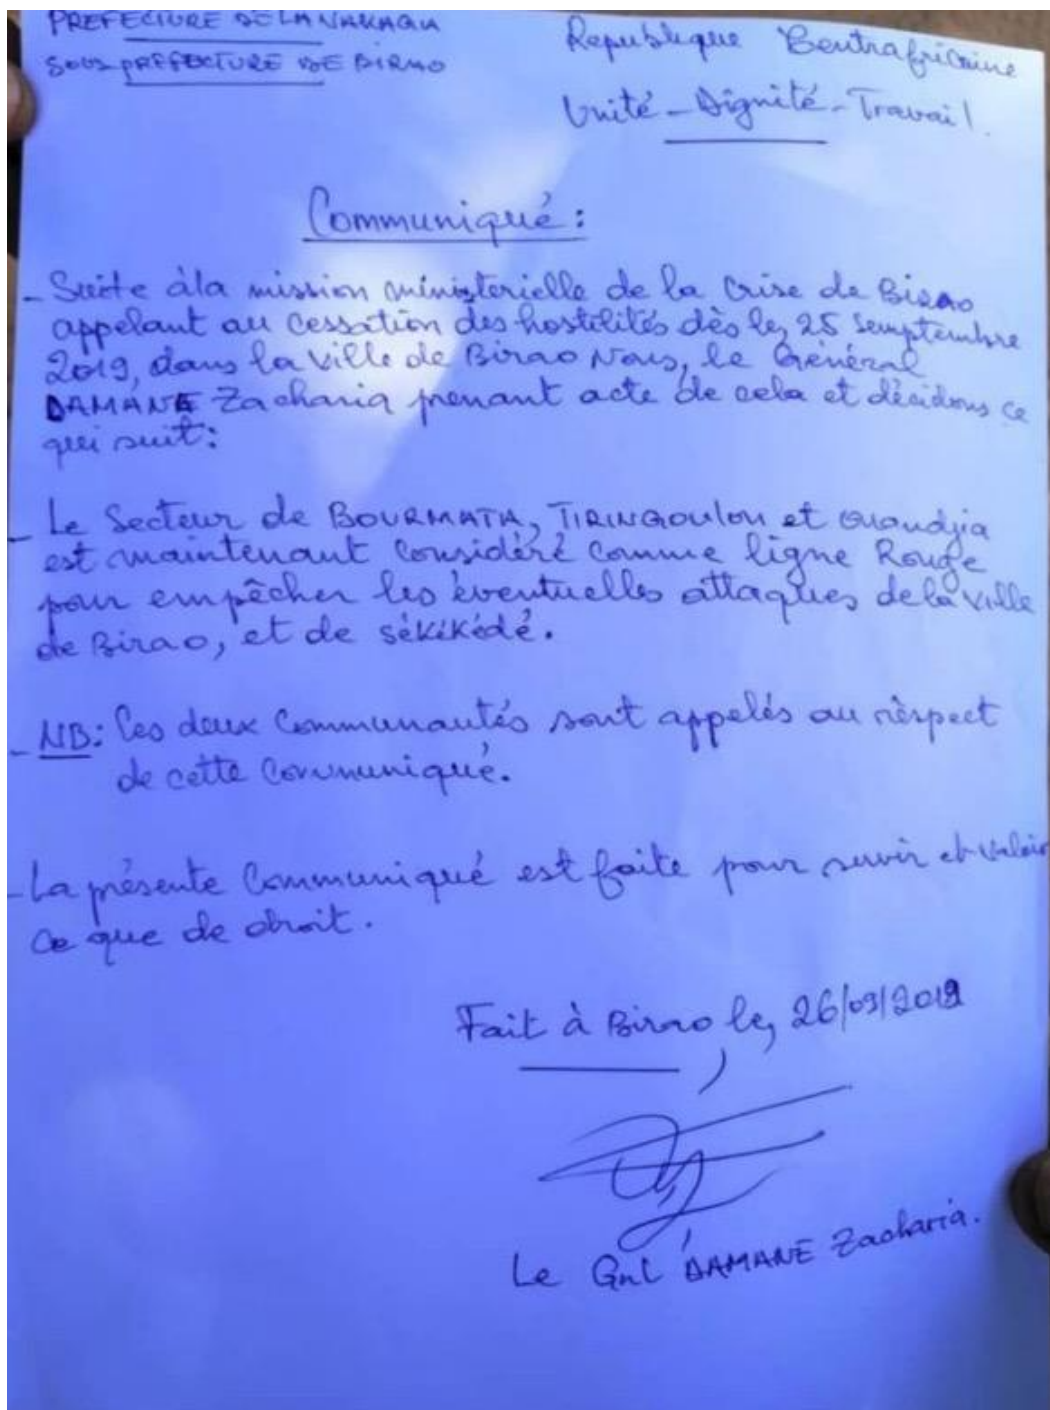 PREFECTURE DE LA VAKAGA
SOUS PREFECTURE DE BIRAO
Republique Centrafricaine
Unité - Dignité - Travail.
Communiqué:
- Suite à la mission ministerielle de la crise de Birao
appelant au cessation des hostilités dès le, 25 Semptembre
2019, dans la ville de Birao Nous, le Général
DAMANE Zacharia prenant acte de cela et décidons ce
qui suit:
- Le Secteur de BOURMATA, TIRINGOULOU et Ouandjia
est maintenant Considéré comme ligne Rouge
pour empêcher les éventuelles attaques de la ville
de Birao, et de sékikédé.
- NB: Les deux Communautés sont appelés au rèspect
de cette Communiqué.
- La présente Communiqué est faite pour servir et valoir
ce que de droit.
Fait à Birao le, 26/09/2019
Le Gnl DAMANE Zacharia.